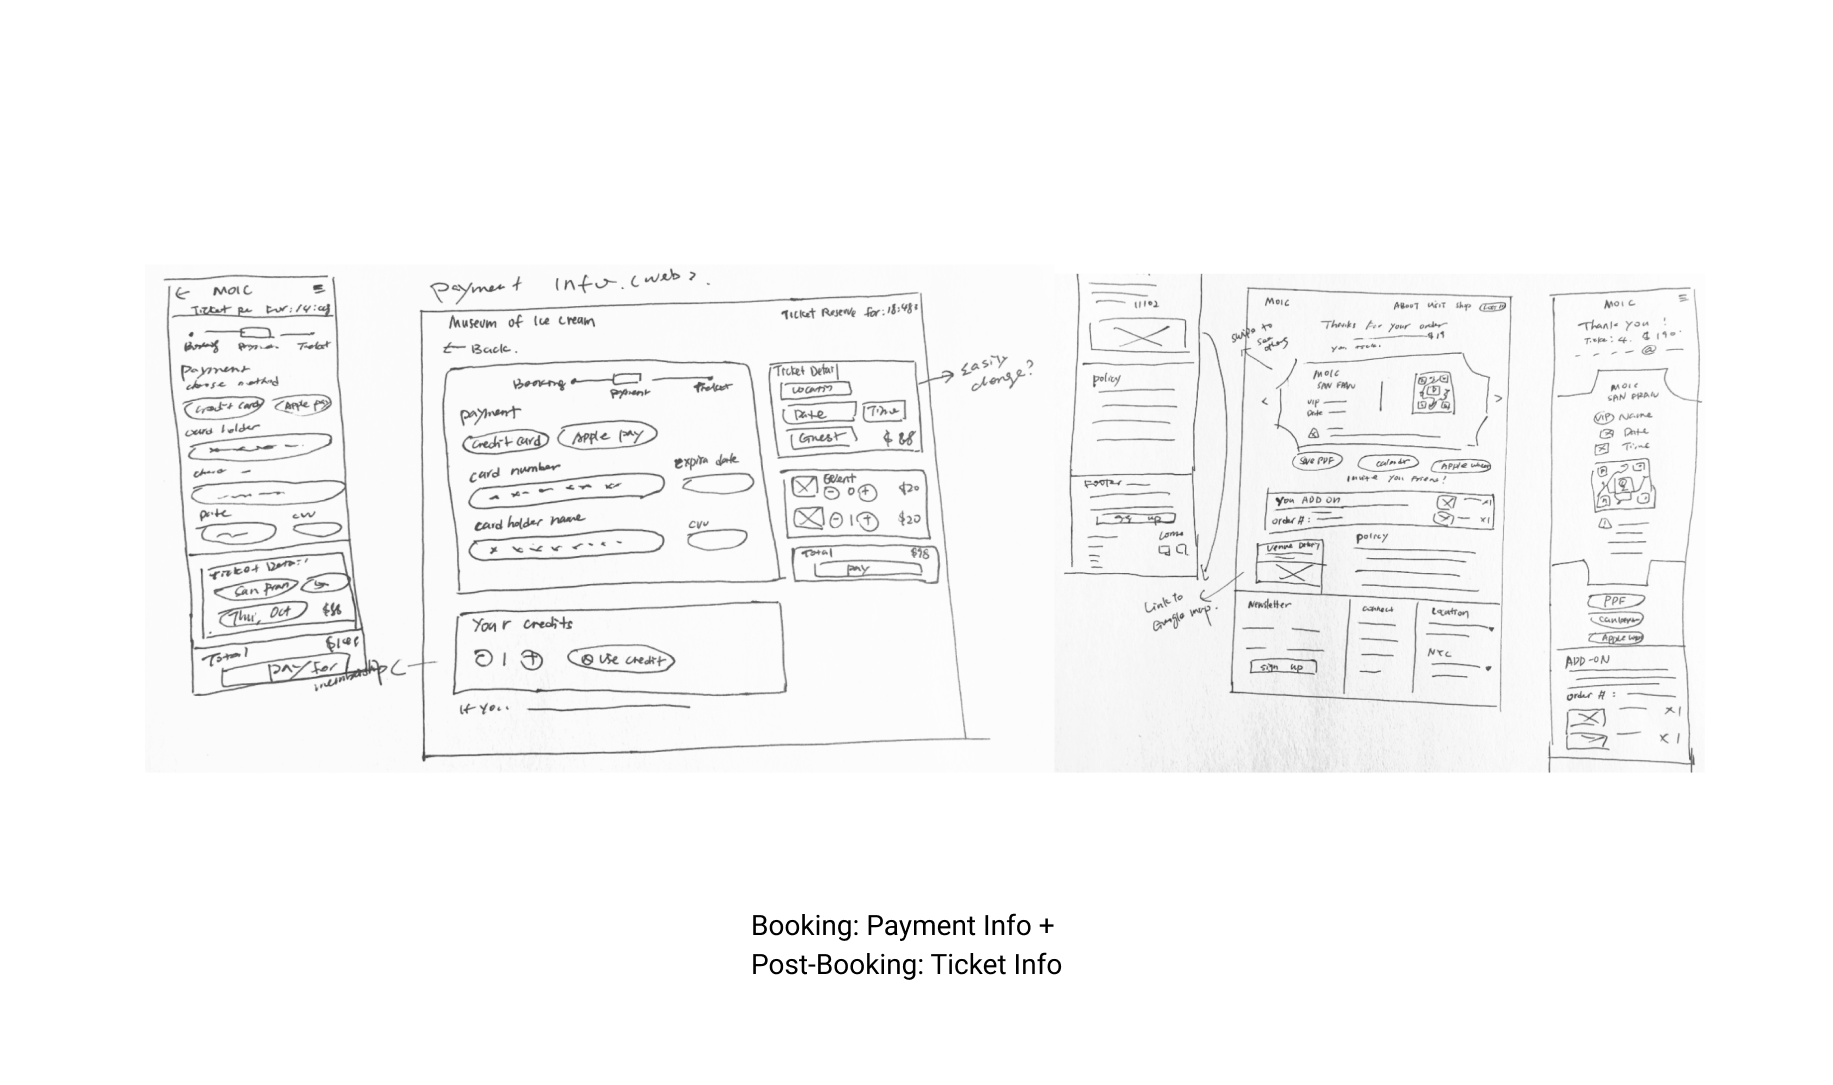 MOIC
Ticket Re For: 14:
Booking Payment Ticket
Payment
choose method
Credit card Apple pay
card holder
Date CVV
Ticket Detail
San Fran
Thu, Oct $88
Total
pay for
membership
Payment Info. (web).
Museum of Ice cream
Ticket Reserve for: 18:48
← Back.
Booking Payment Ticket
payment
credit card Apple pay
card number Expira date
card holder name CVV
Your credits
1 Use credit
If you..
Ticket Detail
Location
Date Time
Guest $88
Event
0 $20
1 $20
Total $98
pay
→ Easily
change?
11102
policy
Footer
sign up
swipe to
see
others
Link to
Google map.
MOIC
ABOUT VISIT Shop
Thanks for your order
$19
MOIC
SAN FRAN
VIP
Date
< >
Save PDF calendar Apple
invite you friend!
You ADD ON x1
order #: x1
venue policy
Newsletter connect Location
NYC
sign up
MOIC
Thank you !
Ticket: 4. $190.
MOIC
SAN FRAN
VIP Name
Date
Time
PDF
Calendar
Apple
ADD-ON
order # :
x1
x1
Booking: Payment Info +
Post-Booking: Ticket Info